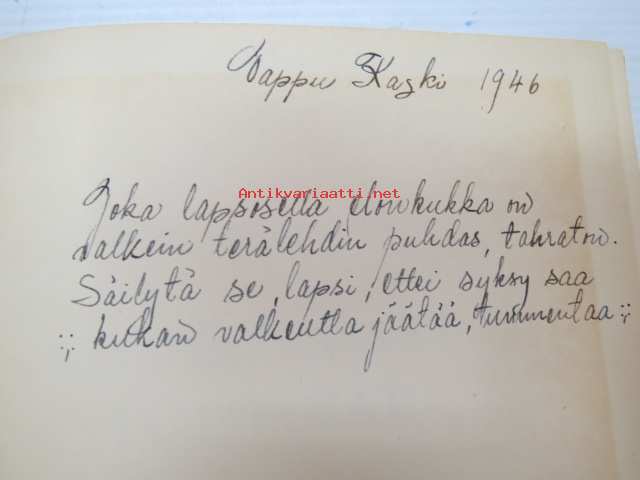 Vappu Kaski 1946
Antikvariaatti.net
Joka lapsosella elonkukka on
valkein terälehdin puhdas, tahraton.
Säilytä se, lapsi, ettei syksy saa
kukan valkeutta jäätää, tummentaa